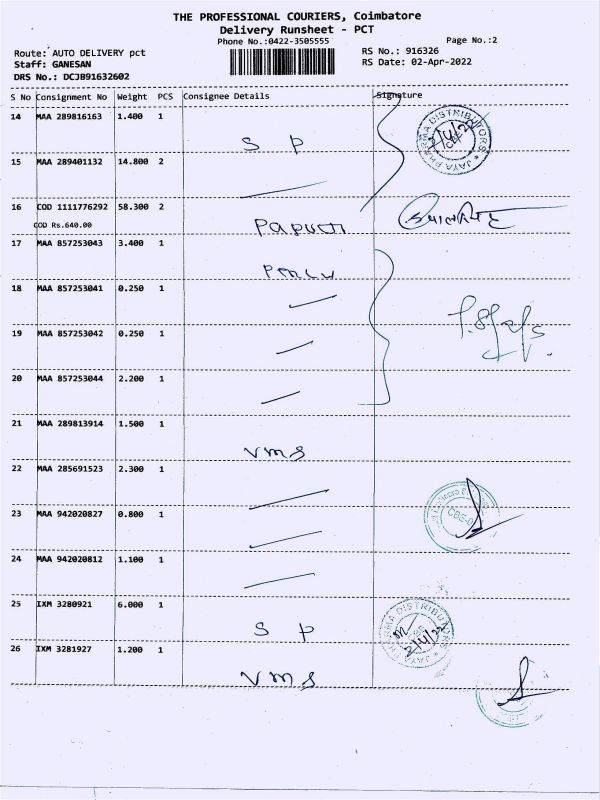 THE PROFESSIONAL COURIERS, Coimbatore
Delivery Runsheet - PCT
Phone No.:0422-3505555
Page No.:2
Route: AUTO DELIVERY pct
RS No.: 916326
Staff: GANESAN
RS Date: 02-Apr-2022
DRS No.: DCJB91632602
S No Consignment No Weight PCS Consignee Details Signature
14 MAA 289816163 1.400 1 S P
JAYA PHARMA DISTRIBUTORS
2/4/22
15 MAA 289401132 14.800 2
16 COD 1111776292 58.300 2
COD Rs.640.00
17 MAA 857253043 3.400 1
18 MAA 857253041 0.250 1
19 MAA 857253042 0.250 1
20 MAA 857253044 2.200 1
21 MAA 289813914 1.500 1 VMS
22 MAA 285691523 2.300 1
23 MAA 942020827 0.800 1
24 MAA 942020812 1.100 1
25 IXM 3280921 6.000 1 S P
JAYA PHARMA DISTRIBUTORS
2/4/22
26 IXM 3281927 1.200 1 VMS